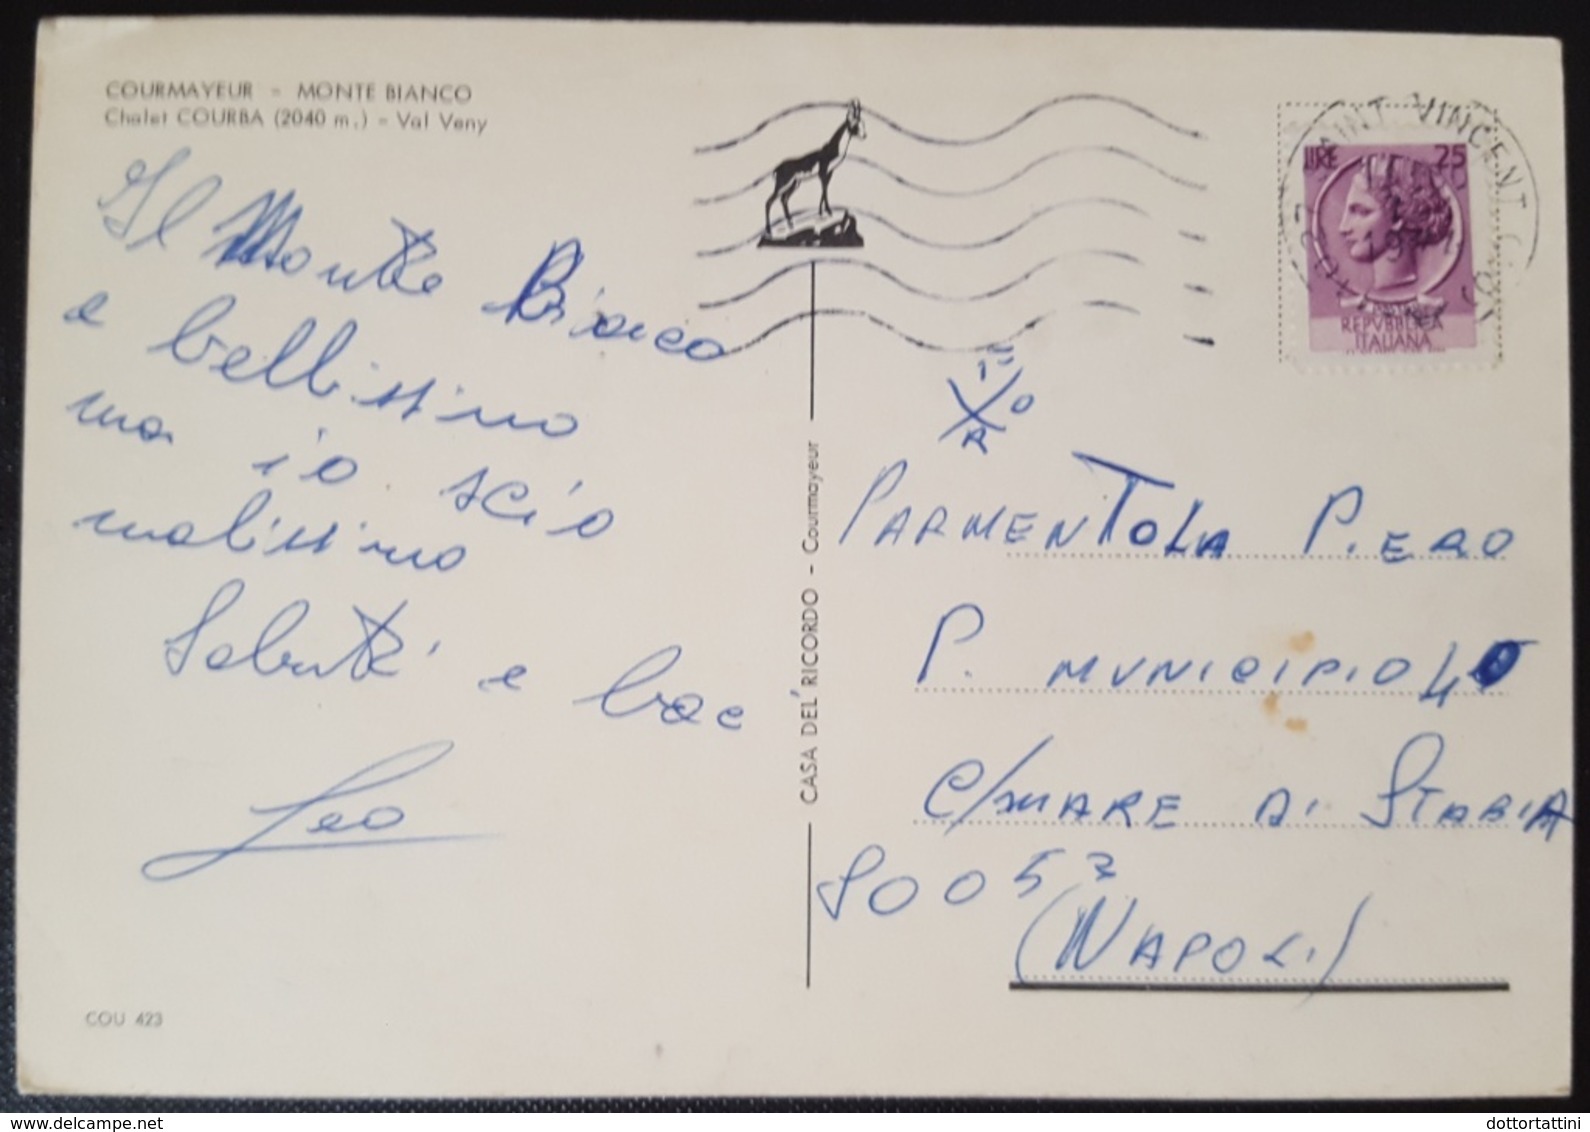 COURMAYEUR - MONTE BIANCO
Chalet COURBA (2040 m.) - Val Veny
Il Monte Bianco
e bellissimo
ma io scio
malissimo
Saluti e bac
Leo
COU 423
CASA DEL RICORDO - Courmayeur
SAINT VINCENT
1971
LIRE 25
REPVBBLICA
ITALIANA
PARMENTOLA PIERO
P. MUNICIPIO 4
C/MARE DI STABIA
80053
(NAPOLI)
delcampe.net
dottortattini